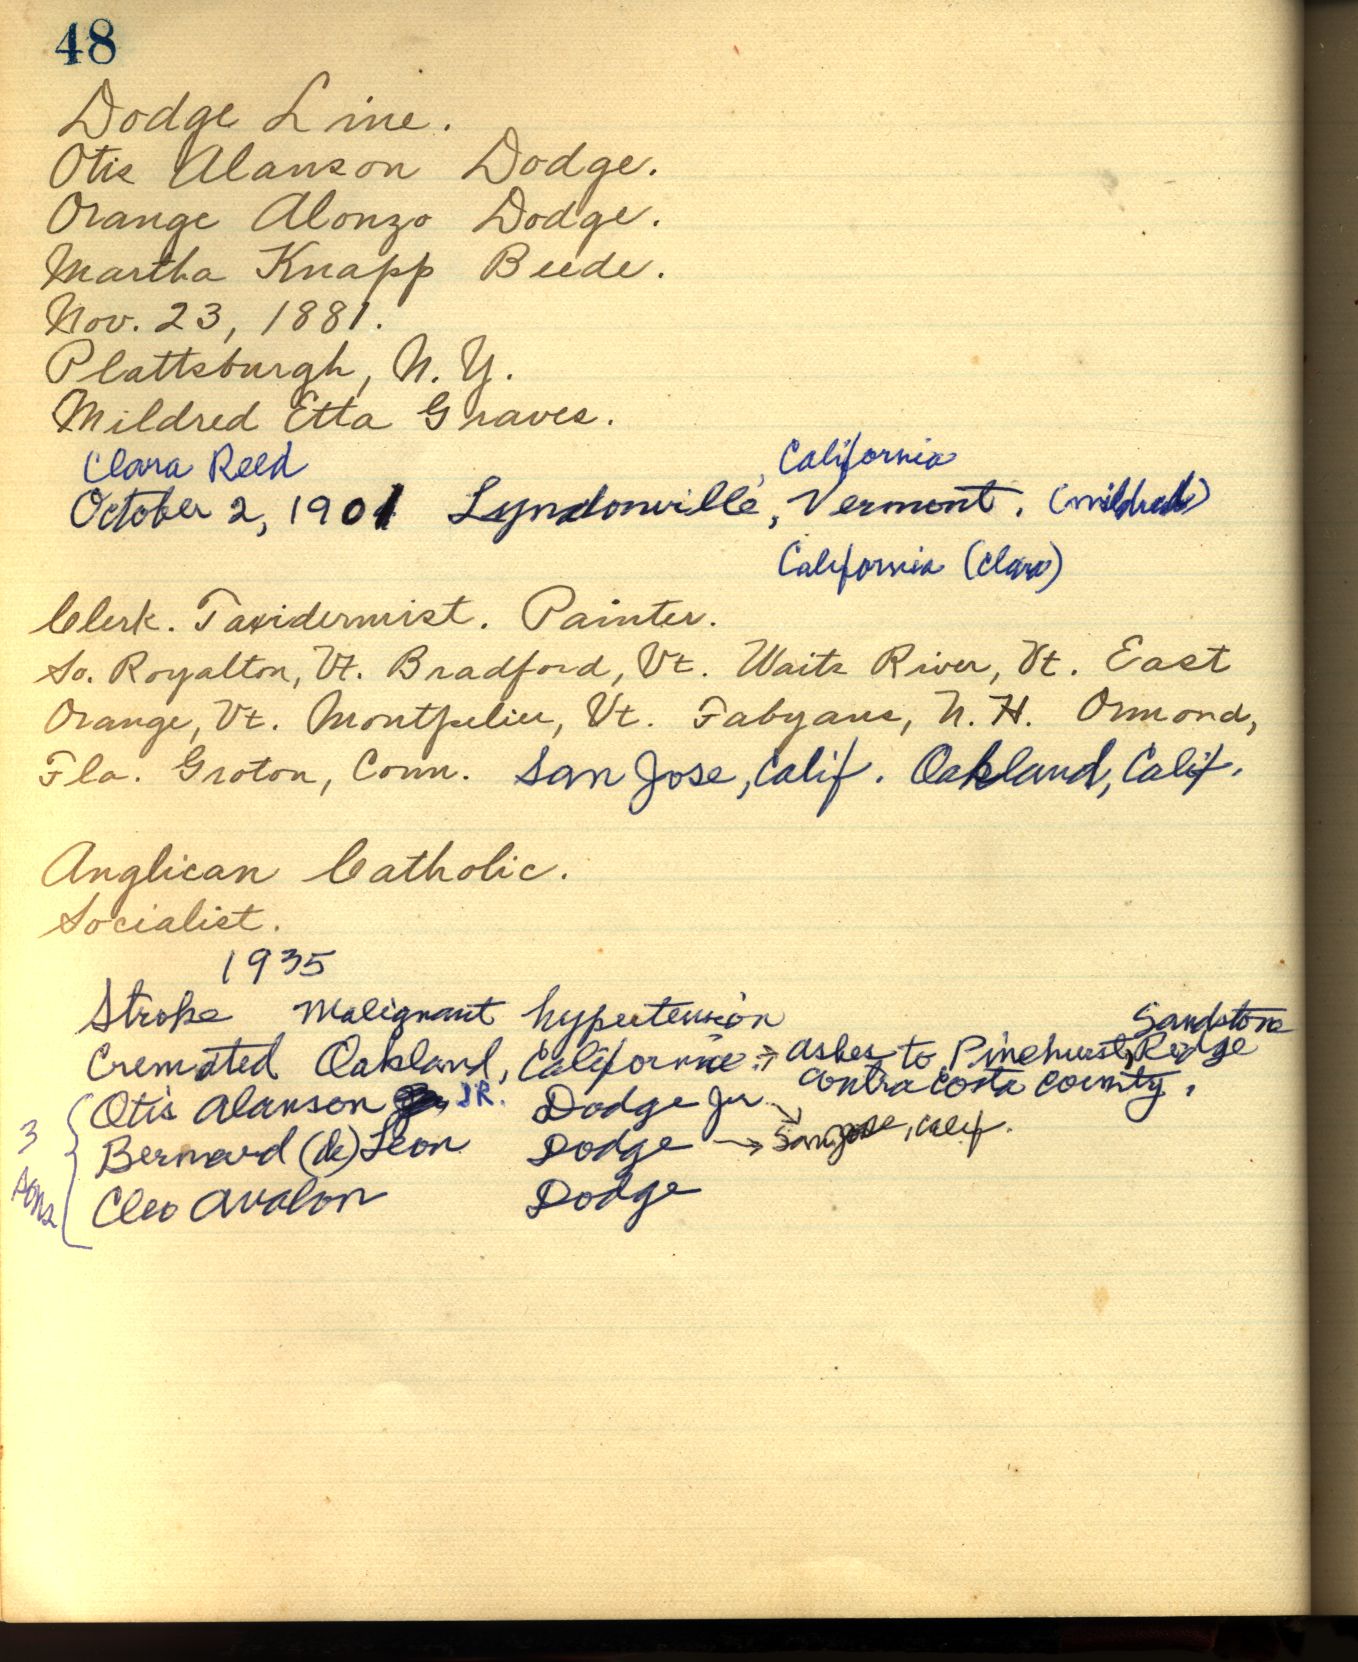 48
Dodge Line.
Otis Alanson Dodge.
Orange Alonzo Dodge.
Martha Knapp Beede.
Nov. 23, 1881.
Plattsburgh, N. Y.
Mildred Etta Graves.
Clara Reed
California
October 2, 1901 Lyndonville, Vermont. (Mildred)
California (Clara)
Clerk. Taxidermist. Painter.
So. Royalton, Vt. Bradford, Vt. Waits River, Vt. East
Orange, Vt. Montpelier, Vt. Fabyans, N. H. Ormond,
Fla. Groton, Conn. San Jose, Calif. Oakland, Calif.
Anglican Catholic.
Socialist.
1935
Stroke Malignant hypertension
Sandstone
Cremated Oakland, California → ashes to Pinehurst, Redge
Contra Costa County.
Otis Alanson JR. Dodge Jr
Bernard (de) Leon Dodge → San Jose, Calif.
Cleo Avalon Dodge
3
sons